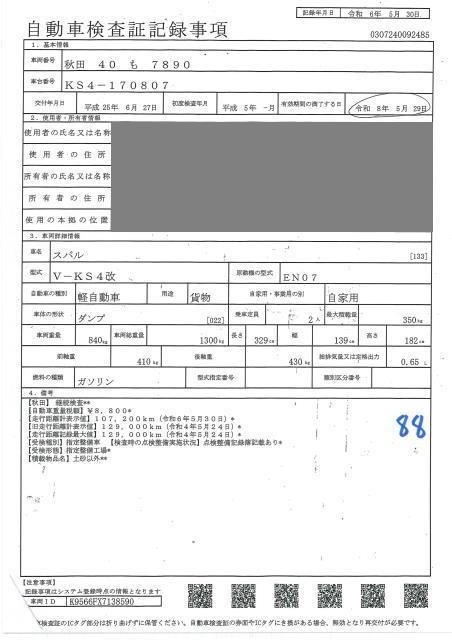 記録年月日 令和 6年 5月 30日
自動車検査証記録事項
0307240092485
1．基本情報
車両番号 秋田 40 も 7890
車台番号 KS4-170807
交付年月日 平成 25年 6月 27日 初度検査年月 平成 5年 -月 有効期間の満了する日 令和 8年 5月 29日
2．使用者・所有者情報
使用者の氏名又は名称
使用者の住所
所有者の氏名又は名称
所有者の住所
使用の本拠の位置
3．車両詳細情報
車名 スバル [133]
型式 V-KS4改 原動機の型式 EN07
自動車の種別 軽自動車 用途 貨物 自家用・事業用の別 自家用
車体の形状 ダンプ [022] 乗車定員 2人 最大積載量 350kg
車両重量 840kg 車両総重量 1300kg 長さ 329cm 幅 139cm 高さ 182cm
前軸重 410kg 後軸重 430kg 総排気量又は定格出力 0.65L
燃料の種類 ガソリン 型式指定番号 類別区分番号
4．備考
【秋田】 継続検査**
【自動車重量税額】￥8,800*
【走行距離計表示値】107,200km（令和6年5月30日）*
【旧走行距離計表示値】129,000km（令和4年5月24日）*
【走行距離記録最大値】129,000km（令和4年5月24日）*
【受検種別】指定整備車 【検査時の点検整備実施状況】点検整備記録簿記載あり*
【受検形態】指定整備工場*
【積載物品名】土砂以外**
88
【注意事項】
記録事項はシステム登録時点の情報となります
車両ID K9566FX7138590
検査証のICタグ部分は折り曲げずに保管ください。自動車検査証の券面やICタグにき損がある場合、無効となり再交付が必要です。